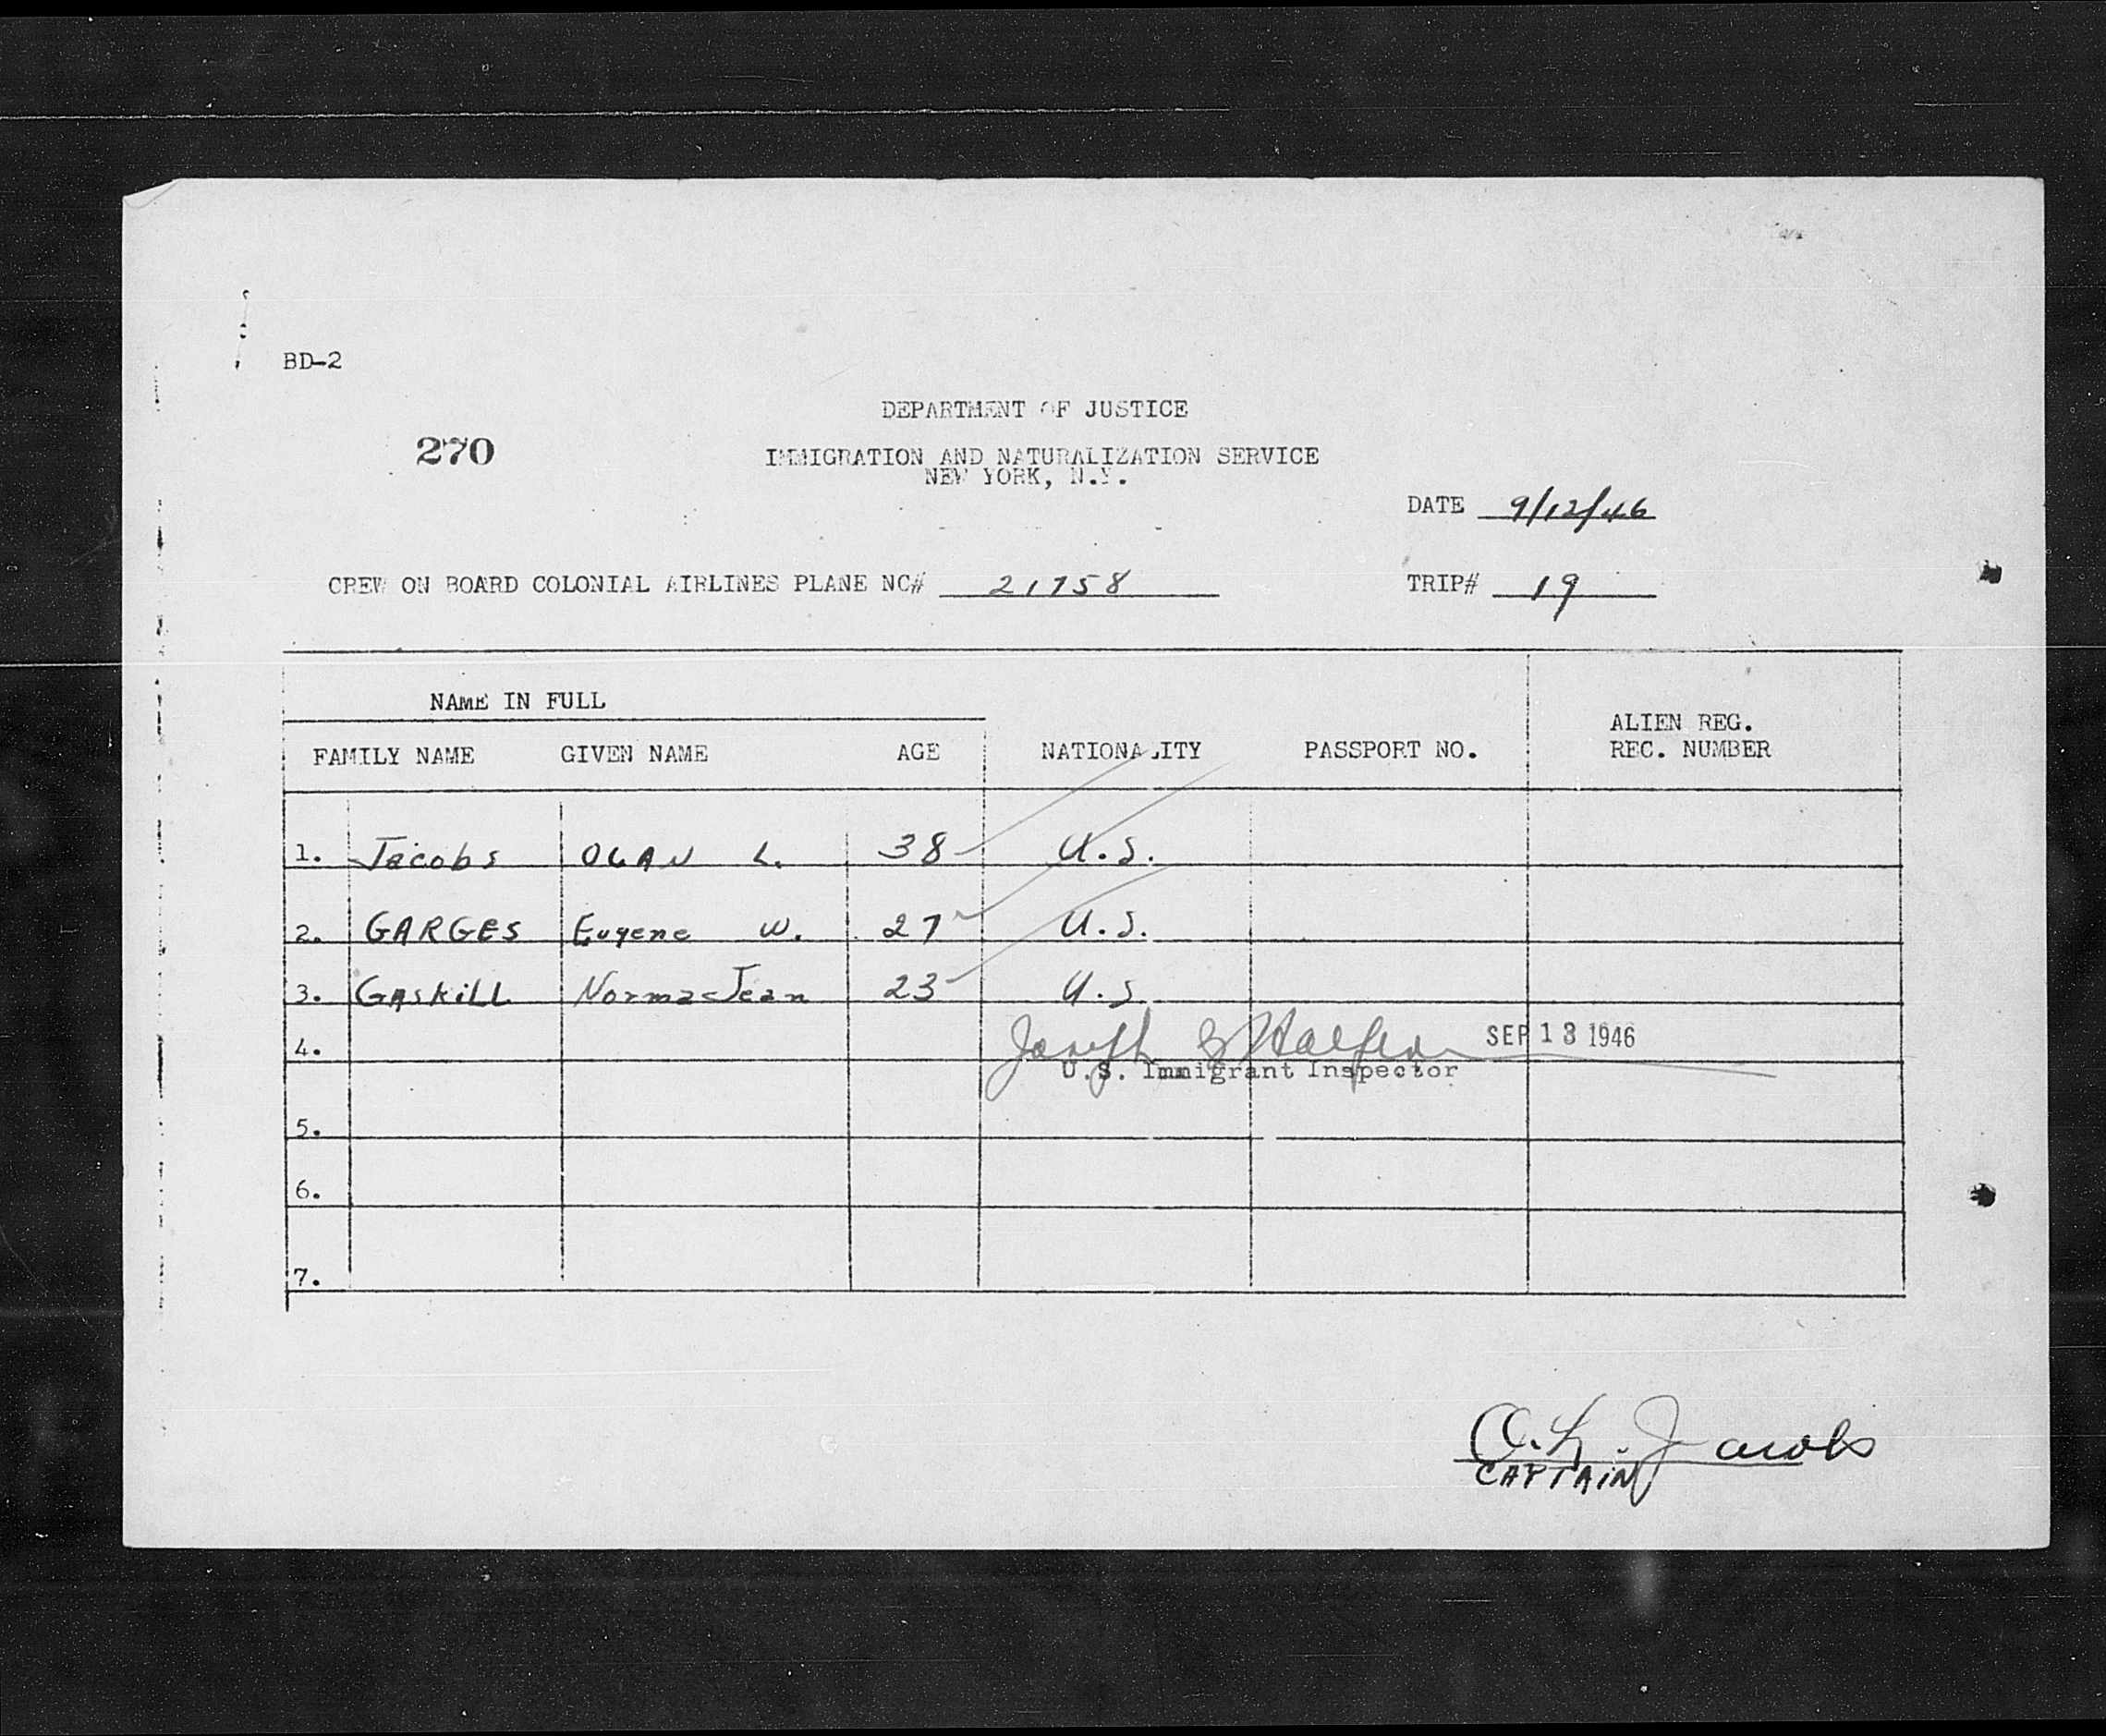 BD-2
DEPARTMENT OF JUSTICE
270
IMMIGRATION AND NATURALIZATION SERVICE
NEW YORK, N.Y.
DATE 9/12/46
CREW ON BOARD COLONIAL AIRLINES PLANE NC# 21758 TRIP# 19
NAME IN FULL
FAMILY NAME GIVEN NAME AGE NATIONALITY PASSPORT NO. ALIEN REG. REC. NUMBER
1. Jacobs OLAN L. 38 U.S.
2. GARGES Eugene W. 27 U.S.
3. GASKILL Norma Jean 23 U.S.
4. Joseph SEP 13 1946
U.S. Immigrant Inspector
5.
6.
7.
O.L. Jacobs
CAPTAIN